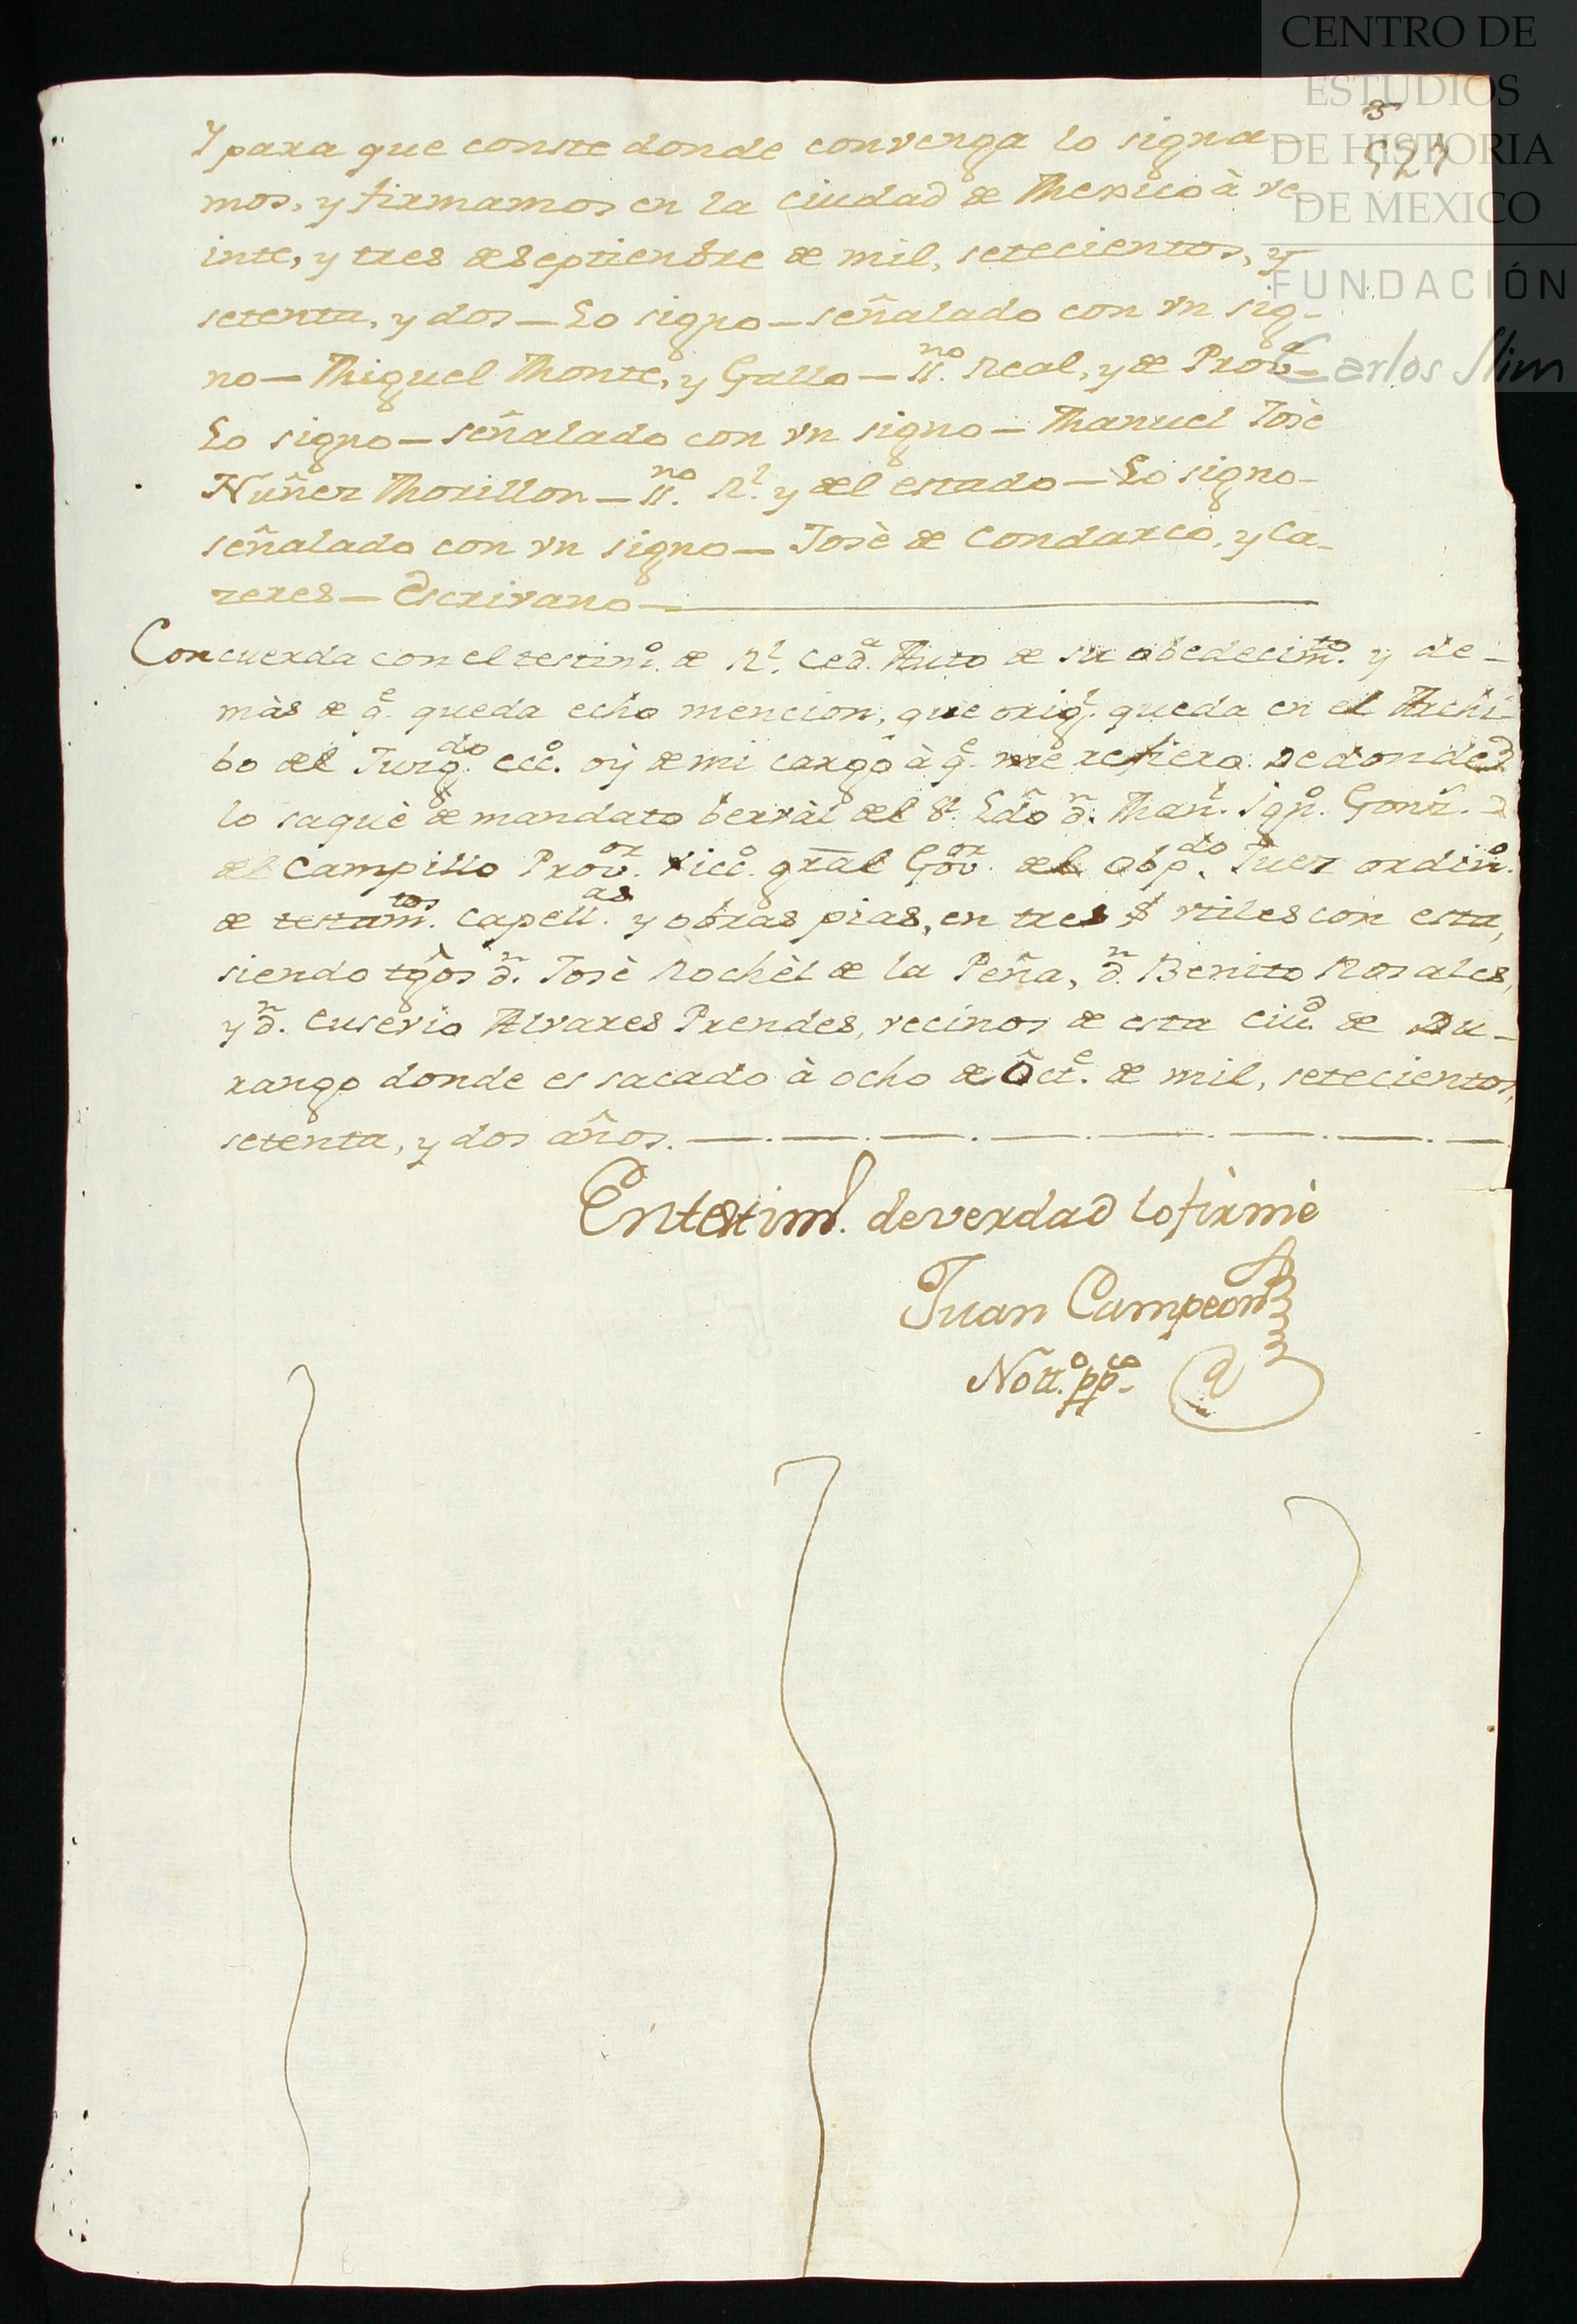 CENTRO DE
ESTUDIOS
DE HISTORIA
DE MEXICO
FUNDACIÓN
Carlos Slim
Y para que conste donde convenga lo signa-
mos, y firmamos en la Ciudad de Mexico à ve-
inte, y tres de septiembre de mil, setecientos, y
setenta, y dos — Lo signo — señalado con vn sig-
no — Miguel Monte, y Gallo — SS.no Real, y de Prova.
Lo signo — señalado con vn signo — Manuel Josè
Nuñez Morillon — SS.no Rl. y del estado — Lo signo —
señalado con vn signo — Josè de Condarco, y Ca-
zeres — Escrivano —
Concuerda con el testimo. de Rl. Ceda. Auto de su obedecimto. y de-
màs de qe. queda echo mencion, que origl. queda en el Archi-
bo del Juzgdo. ecco. oÿ de mi cargo à qe. me refiero. De donde
lo saquè de mandato berval del Sr. Ldo. Dn. Manl. Igno. Gonz.
del Campillo Provor. Vicco. gral Govor. del Obpdo. Juez ordino.
de testamtos. Capellas. y obras pias, en tres f vtiles con esta,
siendo tg̃os Dn. Josè Rochèl de la Peña, Dn. Benito Rosales,
y Dn. Eusevio Alvares Prendes, vecinos de esta Ciud. de Du-
rango donde es sacado à ocho de Octe. de mil, setecientos,
setenta, y dos años.
En testimo. de verdad lo firmè
Juan Campeon
Noto. ppco.